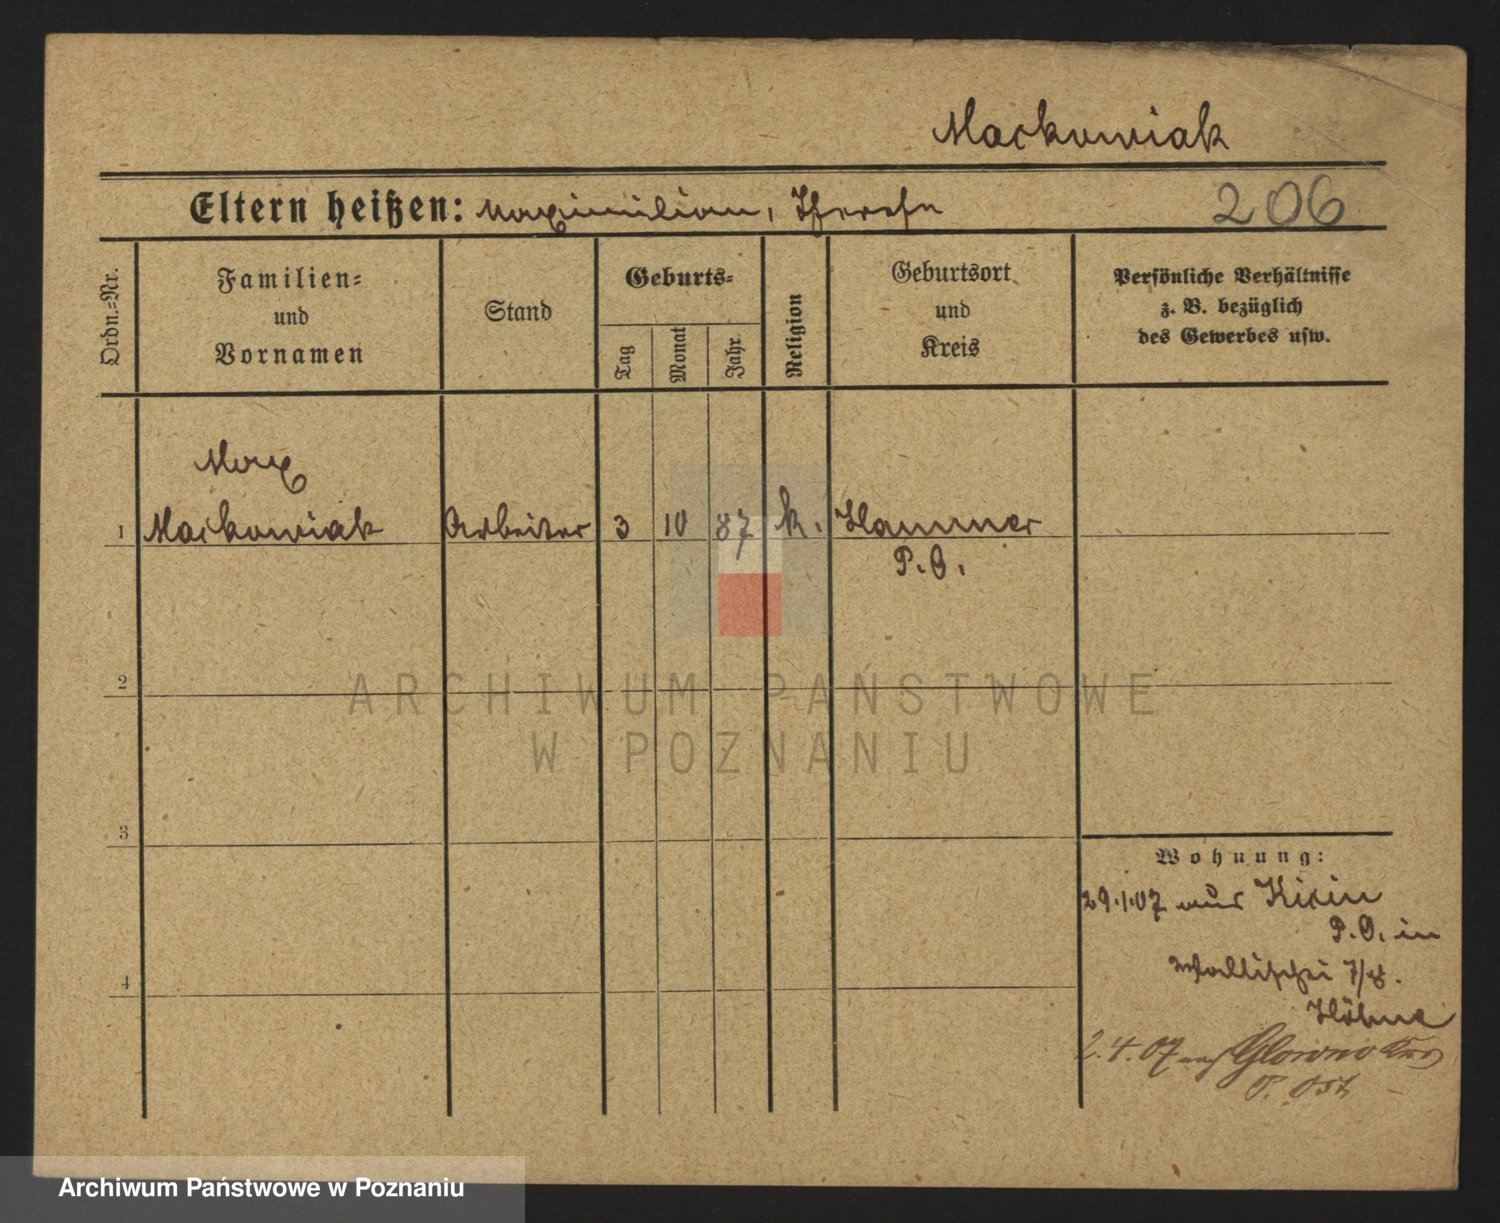 Mackowiak
Eltern heißen: Maximilian, Therese
206
Ordn.=Nr.
Familien=
und
Vornamen
Stand
Geburts=
Tag
Monat
Jahr
Religion
Geburtsort
und
Kreis
Persönliche Verhältnisse
z. B. bezüglich
des Gewerbes usw.
Max
1 Mackowiak Arbeiter 3 10 87 k. Hammer
P. O.
2
3
4
Wohnung:
29.1.07 aus Kicin
P. O. in
Wallischei 7/8.
Höhne
2.4.07 nach Glowno Krs
P. Ost
ARCHIWUM PAŃSTWOWE
W POZNANIU
Archiwum Państwowe w Poznaniu